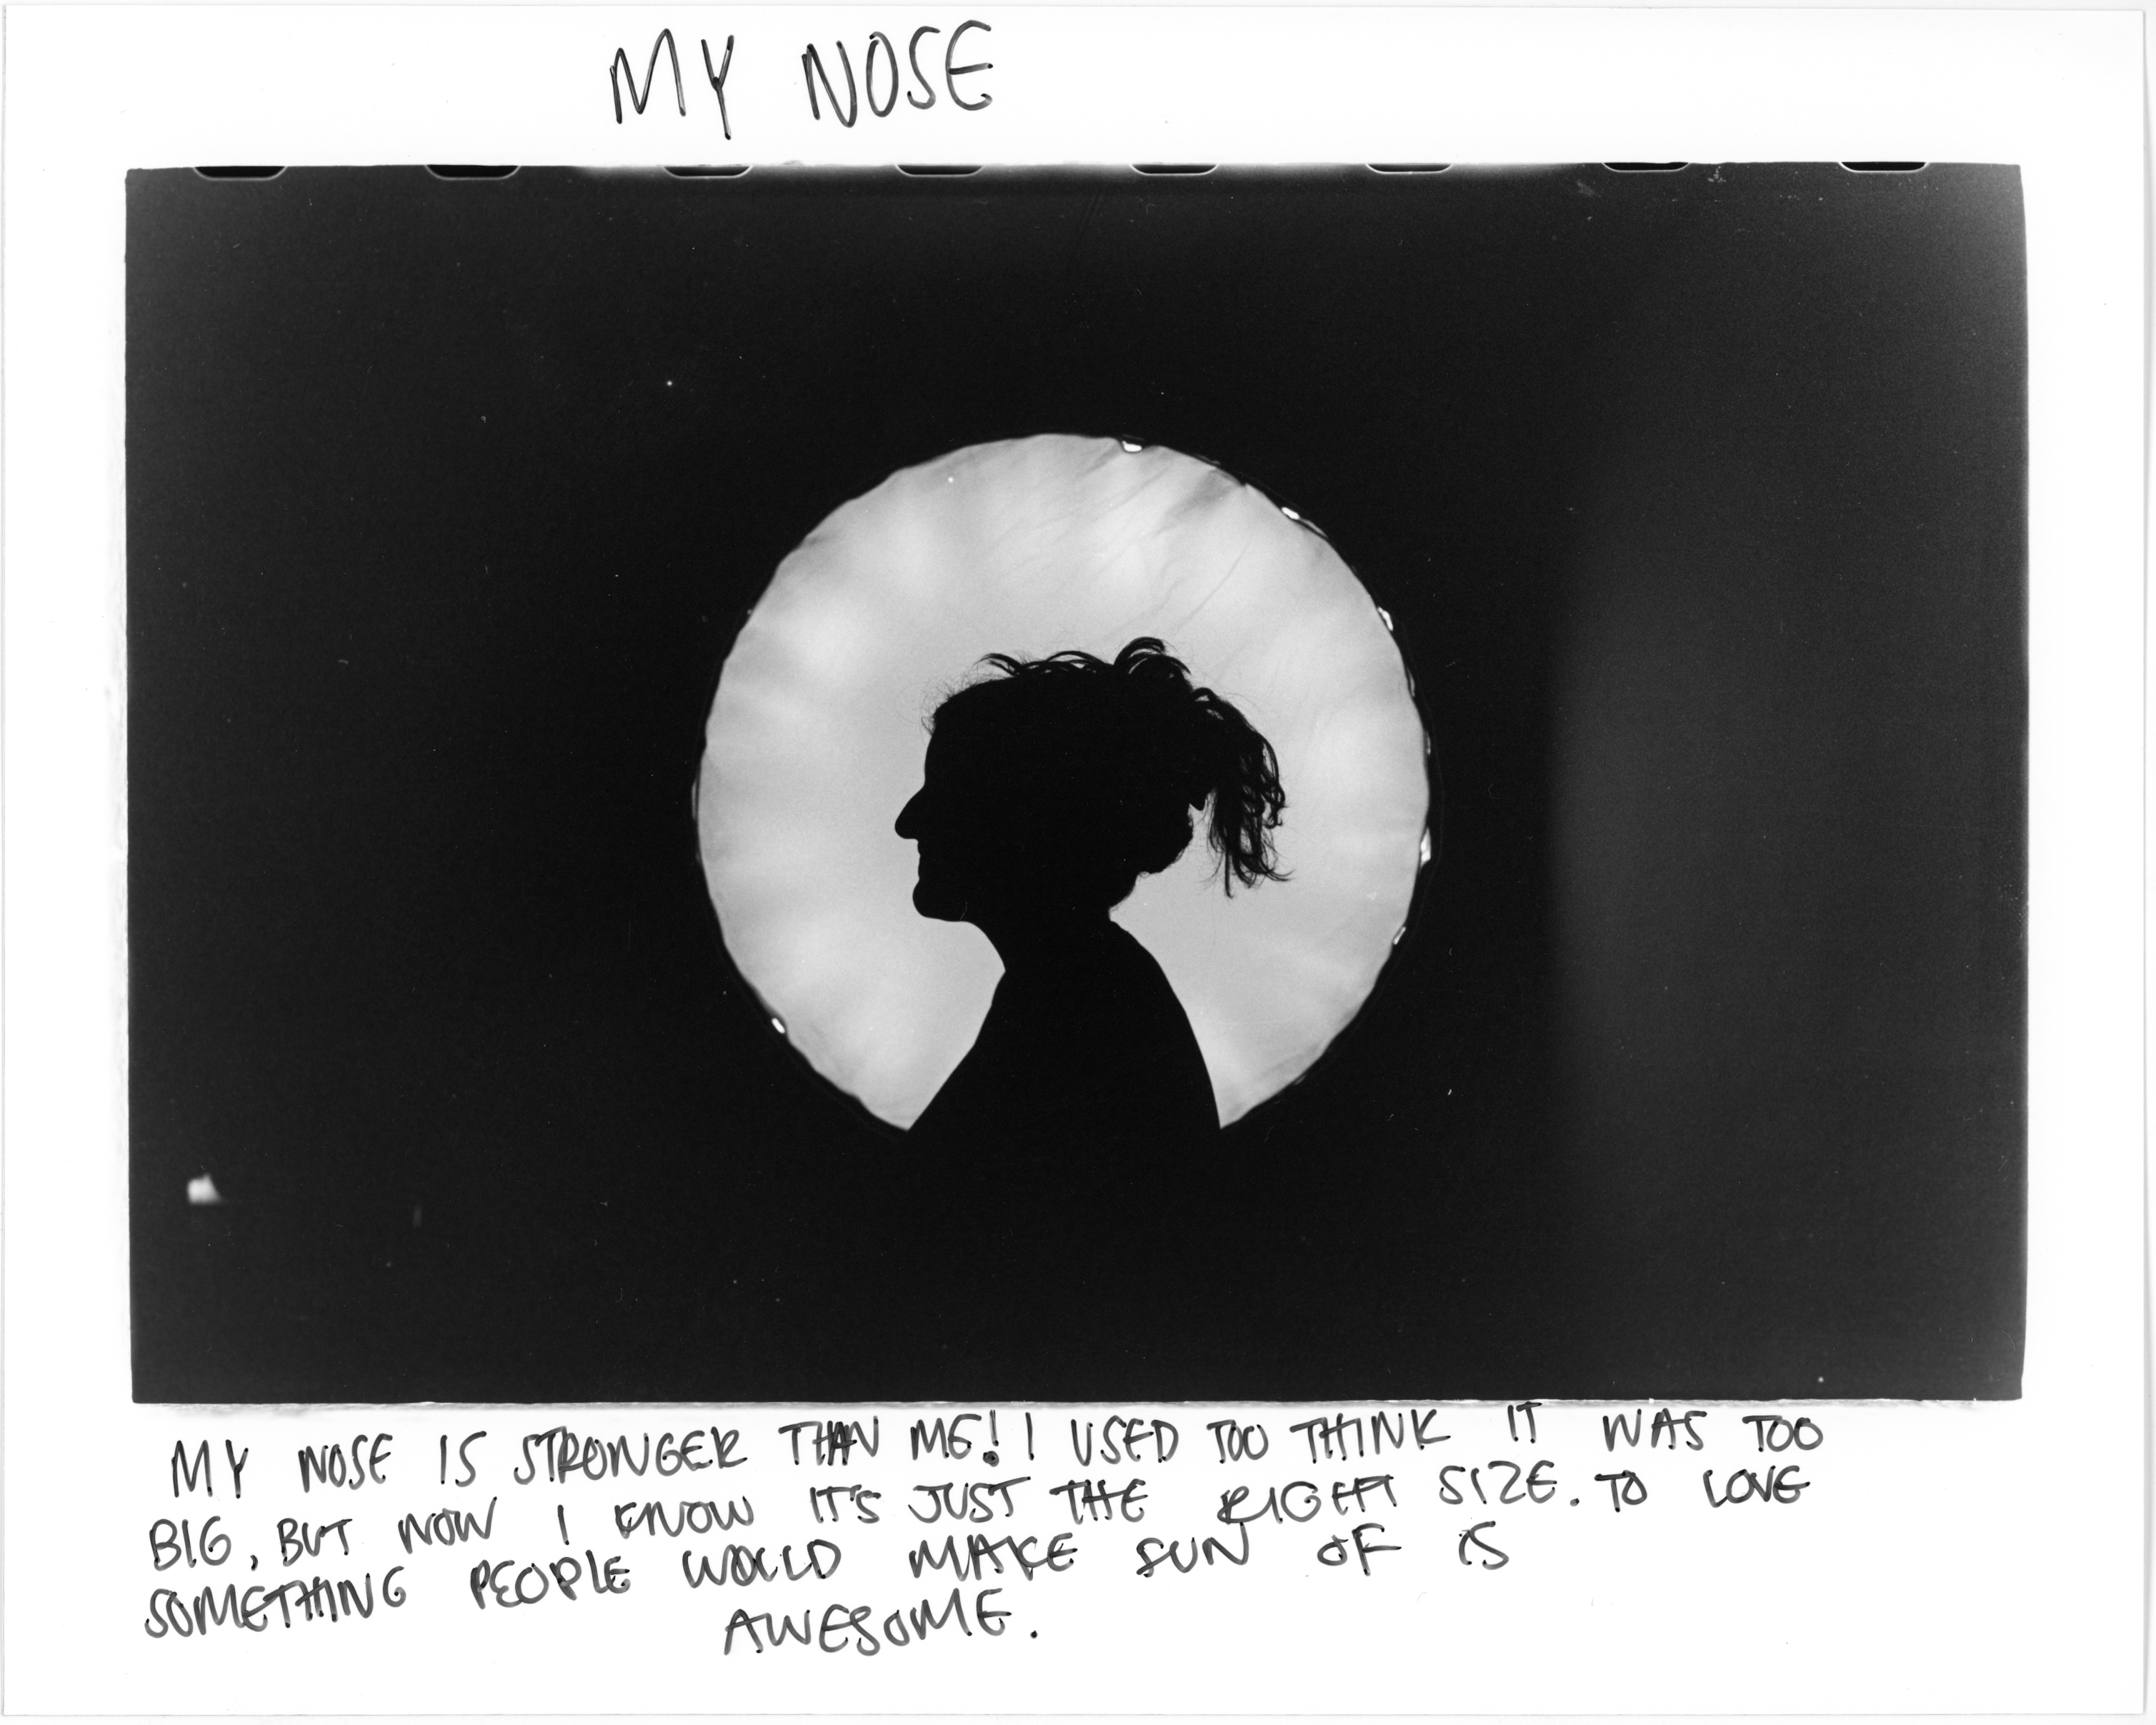 MY NOSE
MY NOSE IS STRONGER THAN ME! I USED TOO THINK IT WAS TOO
BIG, BUT NOW I KNOW IT'S JUST THE RIGHT SIZE. TO LOVE
SOMETHING PEOPLE WOULD MAKE FUN OF IS
AWESOME.